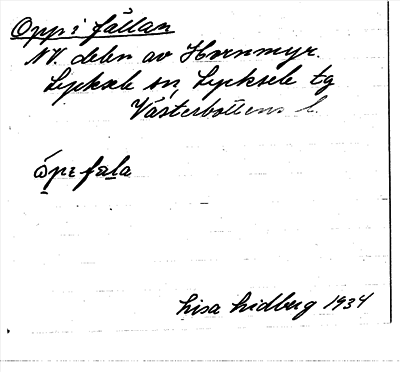 Opp i fällan
NV. delen av Hornmyr.
Lycksele sn, Lycksele tg
Västerbottens l.
ópɪ fala
Lisa Lidberg 1934